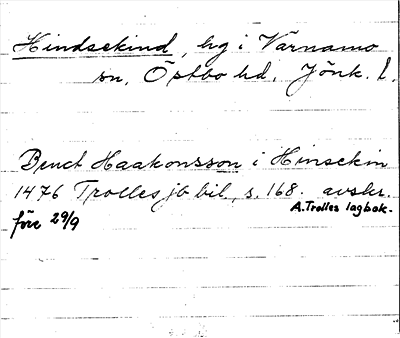 Hindsekind, hg i Värnamo
sn, Östbo hd, Jönk. l.
Benct Haakonsson i Hinsekin
1476 Trolles jb bil, s. 168. avskr.
före 29/9 A. Trolles lagbok.